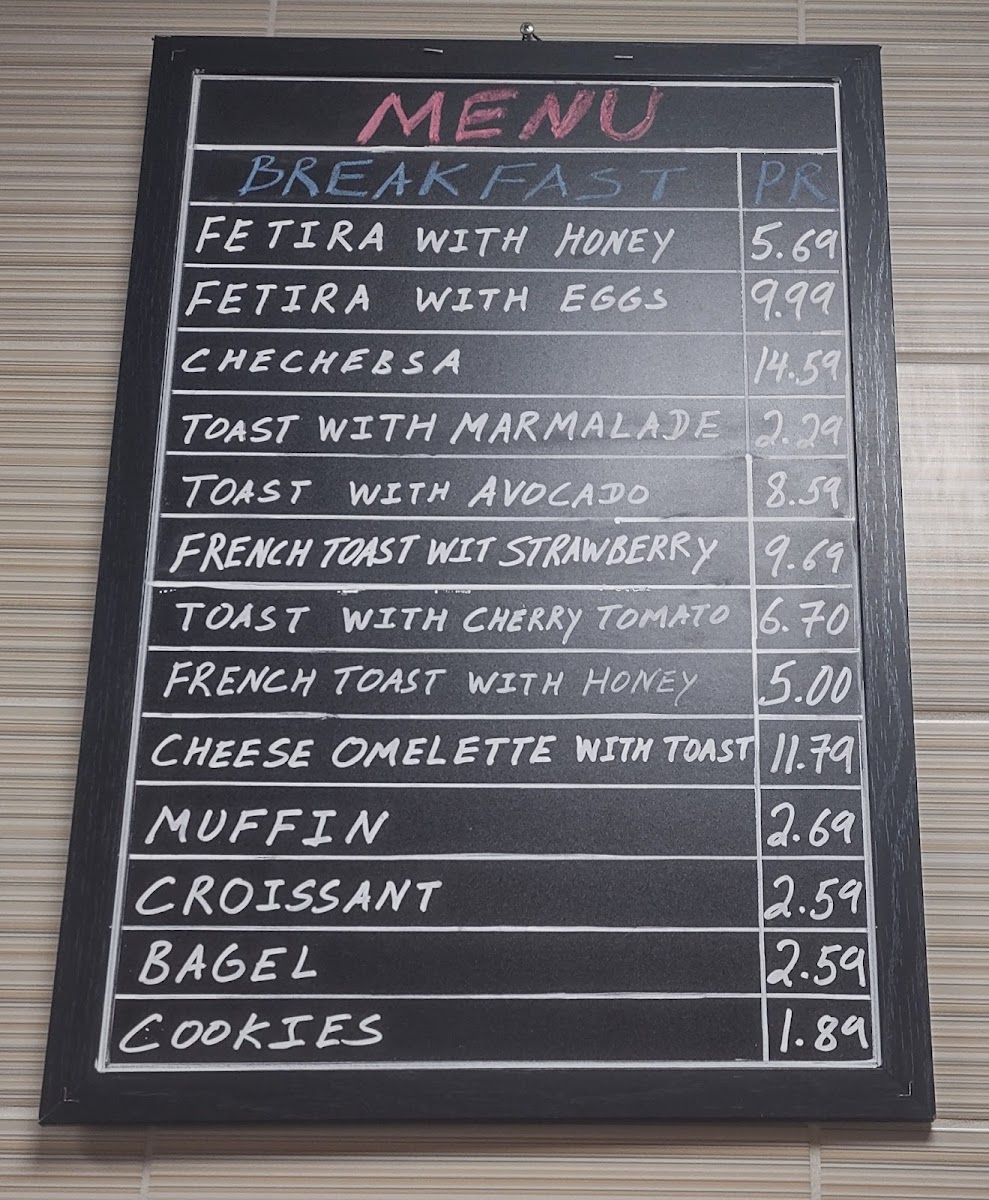 MENU
BREAKFAST PR
FETIRA WITH HONEY 5.69
FETIRA WITH EGGS 9.99
CHECHEBSA 14.59
TOAST WITH MARMALADE 2.29
TOAST WITH AVOCADO 8.59
FRENCH TOAST WIT STRAWBERRY 9.69
TOAST WITH CHERRY TOMATO 6.70
FRENCH TOAST WITH HONEY 5.00
CHEESE OMELETTE WITH TOAST 11.79
MUFFIN 2.69
CROISSANT 2.59
BAGEL 2.59
COOKIES 1.89